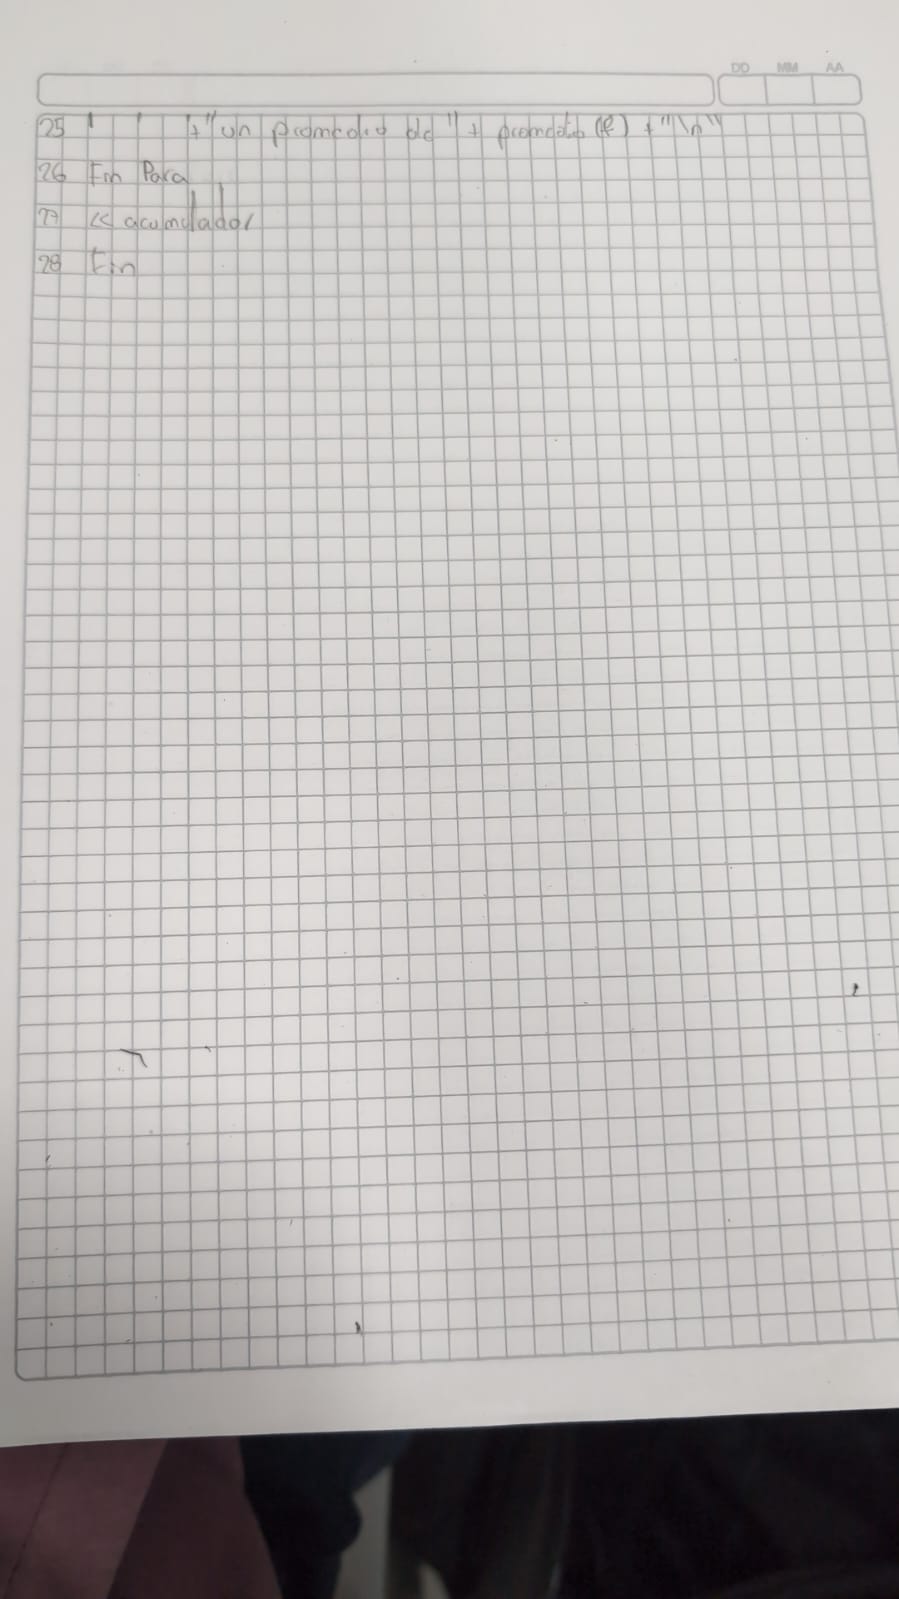 DD MM AA
25 + "un promedio de" + promedio (f) + "\n"
26 Fin Para
27 << acumulador
28 Fin